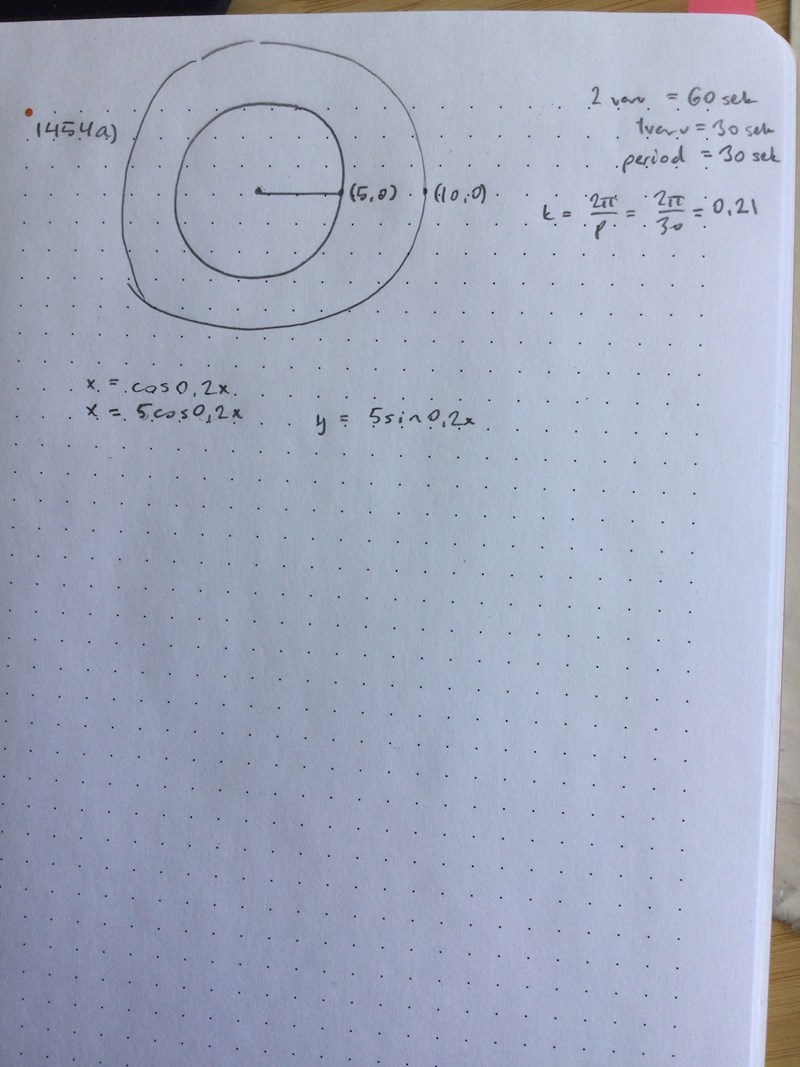 1454a)
(5,0) (10,0)
2 varv = 60 sek
1varv = 30 sek
period = 30 sek
k = 2π/P = 2π/30 = 0,21
x = cos0,2x
x = 5cos0,2x y = 5sin0,2x